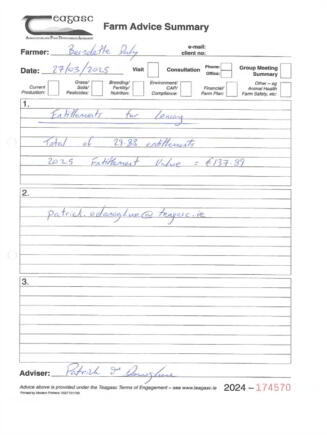 Teagasc
Farm Advice Summary
Agriculture and Food Development Authority
e-mail:
Farmer: Bernadette Daly client no:
Date: 27/03/2025 Visit Consultation Phone: Office: Group Meeting Summary
Current Production: Grass/ Soils/ Pesticides: Breeding/ Fertility/ Nutrition: Environment/ CAP/ Compliance: Financial/ Farm Plan: Other – eg Animal Health Farm Safety, etc:
1.
Entitlements for Leasing
Total of 29.83 entitlements
2025 Entitlement Value = €137.89
2.
patrick.odonoghue@teagasc.ie
3.
Adviser: Patrick O' Donoghue
Advice above is provided under the Teagasc Terms of Engagement – see www.teagasc.ie 2024 – 174570